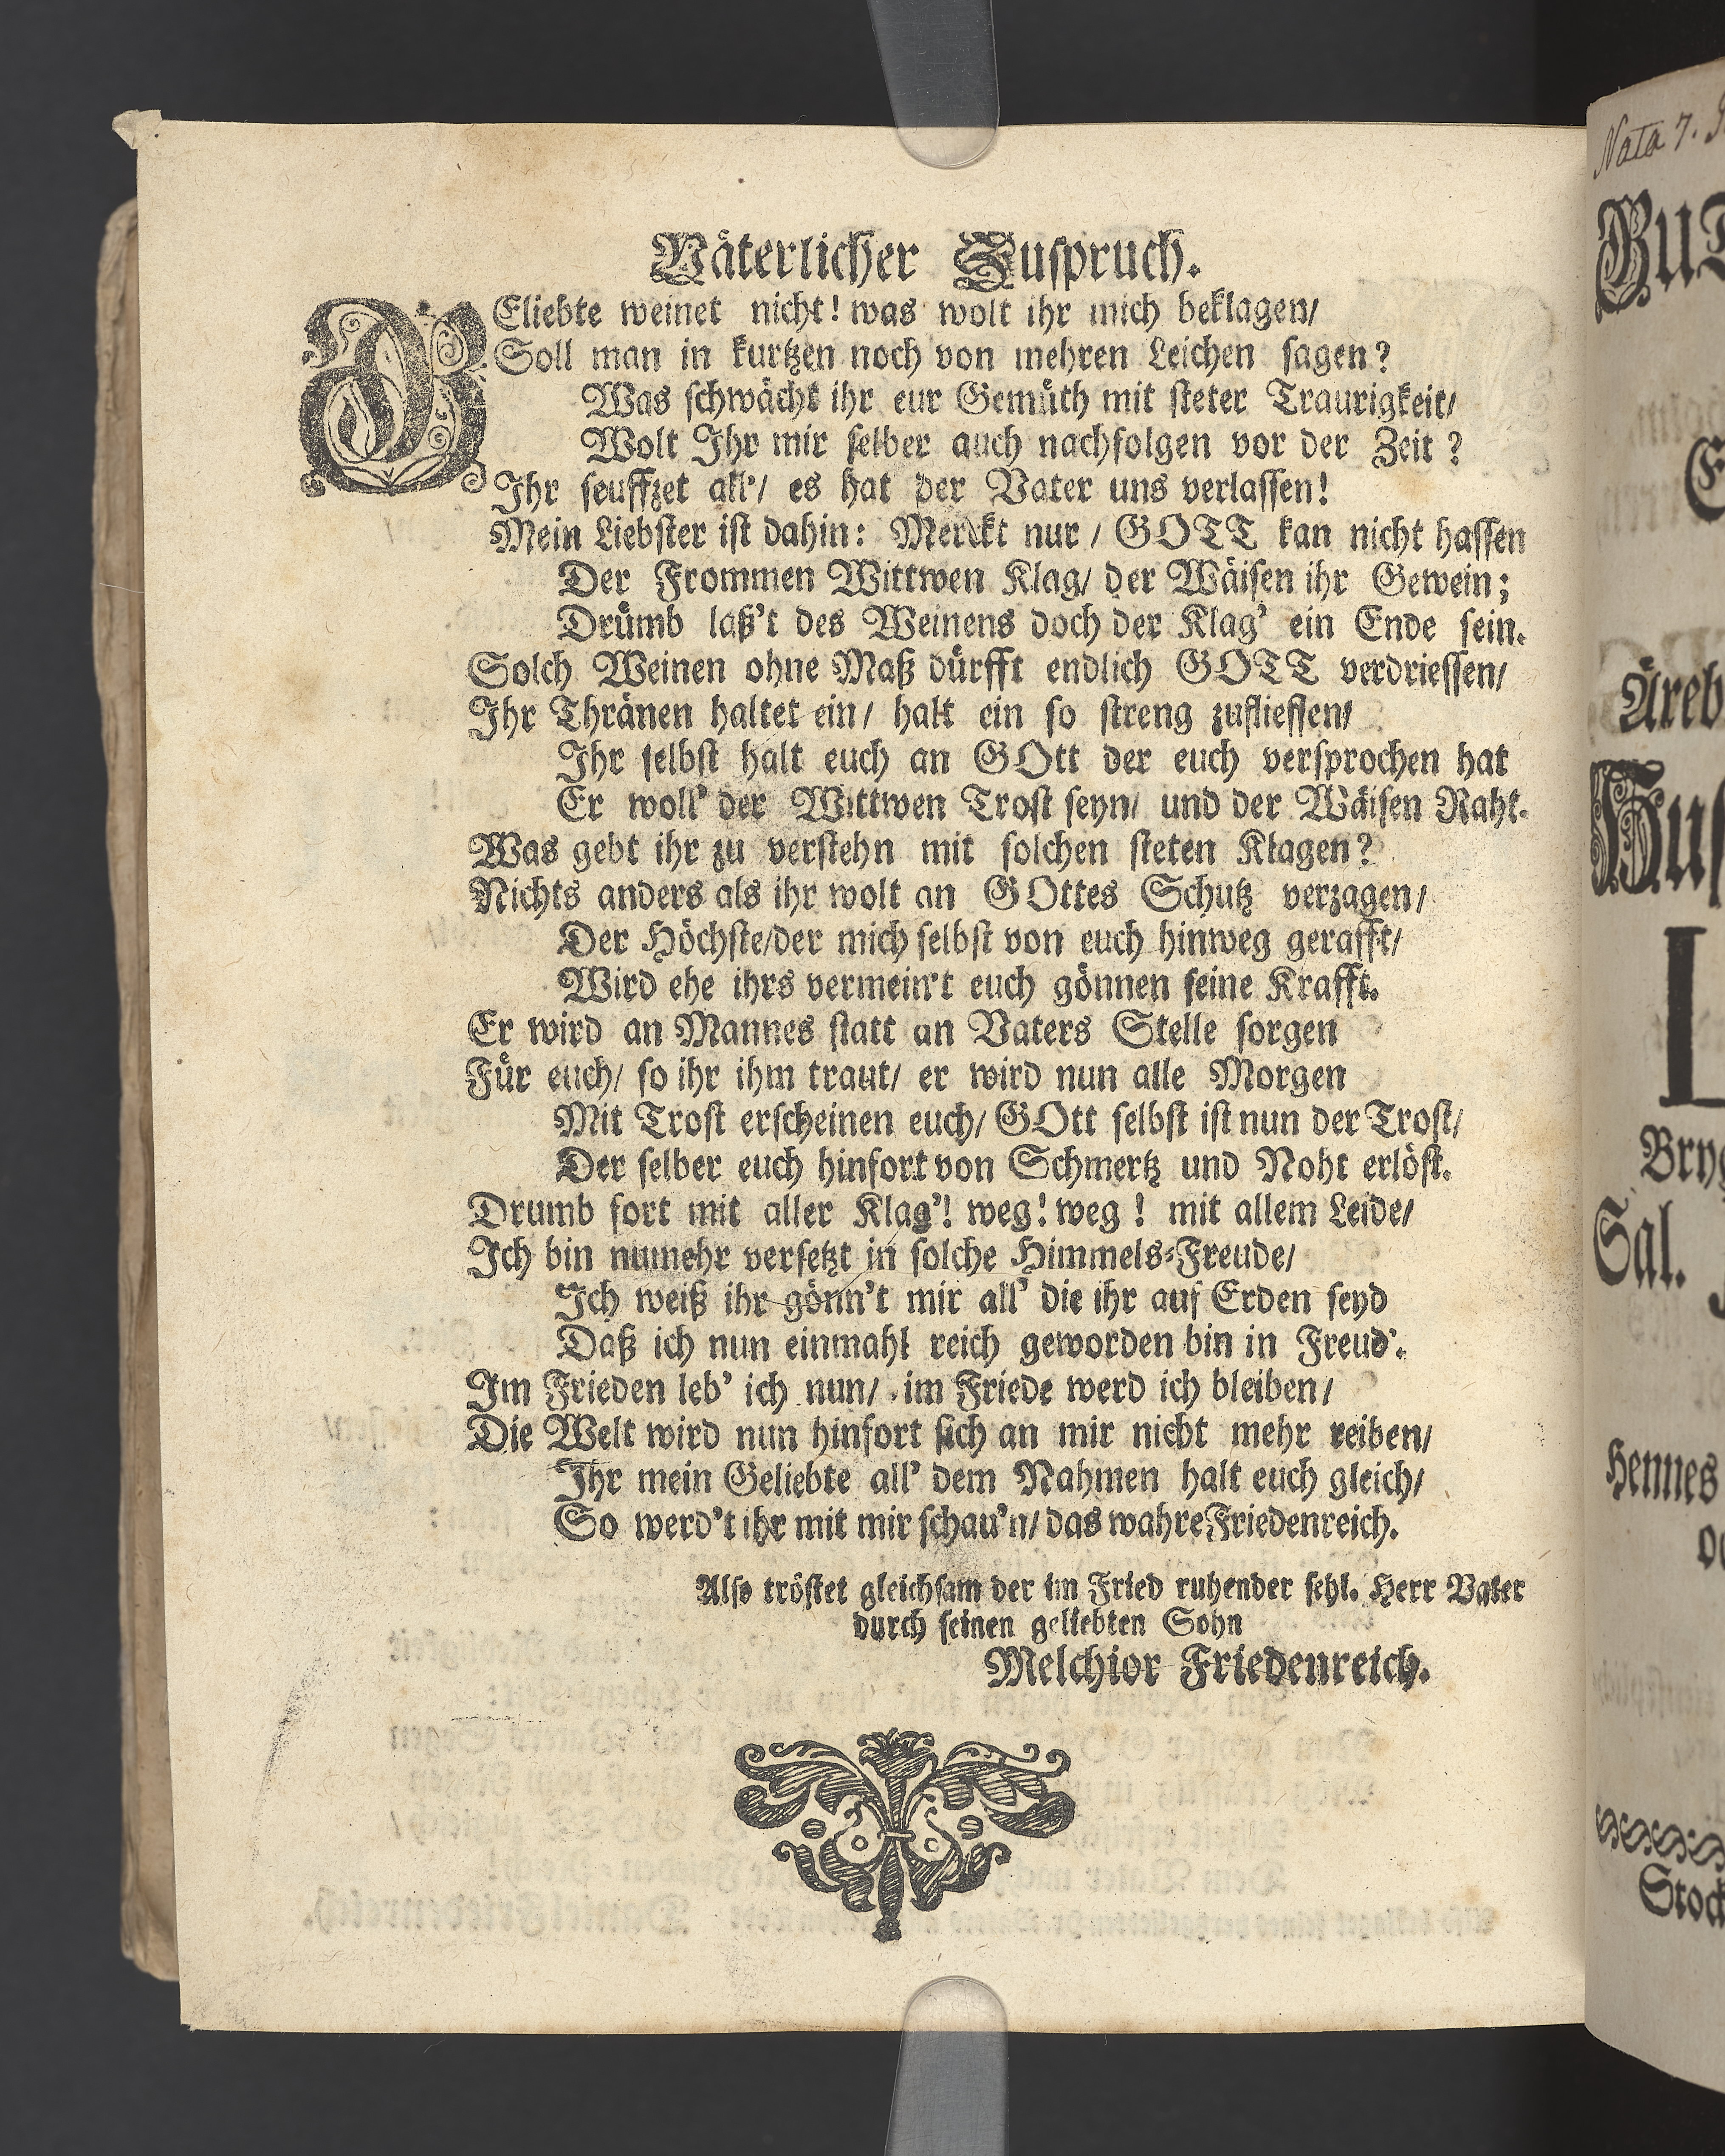 Väterlicher Zuspruch.
GEliebte weinet nicht! was wolt ihr mich beklagen/
Soll man in kurtzen noch von mehren Leichen sagen?
Was schwächt ihr eur Gemüth mit steter Traurigkeit/
Wolt Ihr mir selber auch nachfolgen vor der Zeit?
Ihr seuffzet all'/ es hat der Vater uns verlassen!
Mein Liebster ist dahin: Merckt nur/ GOTT kan nicht hassen
Der Frommen Wittwen Klag/ der Wäisen ihr Gewein;
Drümb laß't des Weinens doch der Klag' ein Ende sein.
Solch Weinen ohne Maß dürfft endlich GOTT verdriessen/
Ihr Thränen haltet ein/ halt ein so streng zufliessen/
Ihr selbst halt euch an GOtt der euch versprochen hat
Er woll' der Wittwen Trost seyn/ und der Wäisen Raht.
Was gebt ihr zu verstehn mit solchen steten Klagen?
Nichts anders als ihr wolt an GOttes Schutz verzagen/
Der Höchste/der mich selbst von euch hinweg gerafft/
Wird ehe ihrs vermein't euch gönnen seine Krafft.
Er wird an Mannes statt an Vaters Stelle sorgen
Für euch/ so ihr ihm traut/ er wird nun alle Morgen
Mit Trost erscheinen euch/ GOtt selbst ist nun der Trost/
Der selber euch hinfort von Schmertz und Noht erlöst.
Drumb fort mit aller Klag'! weg! weg! mit allem Leide/
Ich bin numehr versetzt in solche Himmels-Freude/
Ich weiß ihr gönn't mir all' die ihr auf Erden seyd
Daß ich nun einmahl reich geworden bin in Freud'.
Im Frieden leb' ich nun/ im Friede werd ich bleiben/
Die Welt wird nun hinfort sich an mir nicht mehr reiben/
Ihr mein Geliebte all' dem Nahmen halt euch gleich/
So werd't ihr mit mir schau'n/ das wahre Friedenreich.
Also tröstet gleichsam der im Fried ruhender sehl. Herr Vater
durch seinen geliebten Sohn
Melchior Friedenreich.
Nata 7.
Äreb
L
Sal.
Hennes
Stock